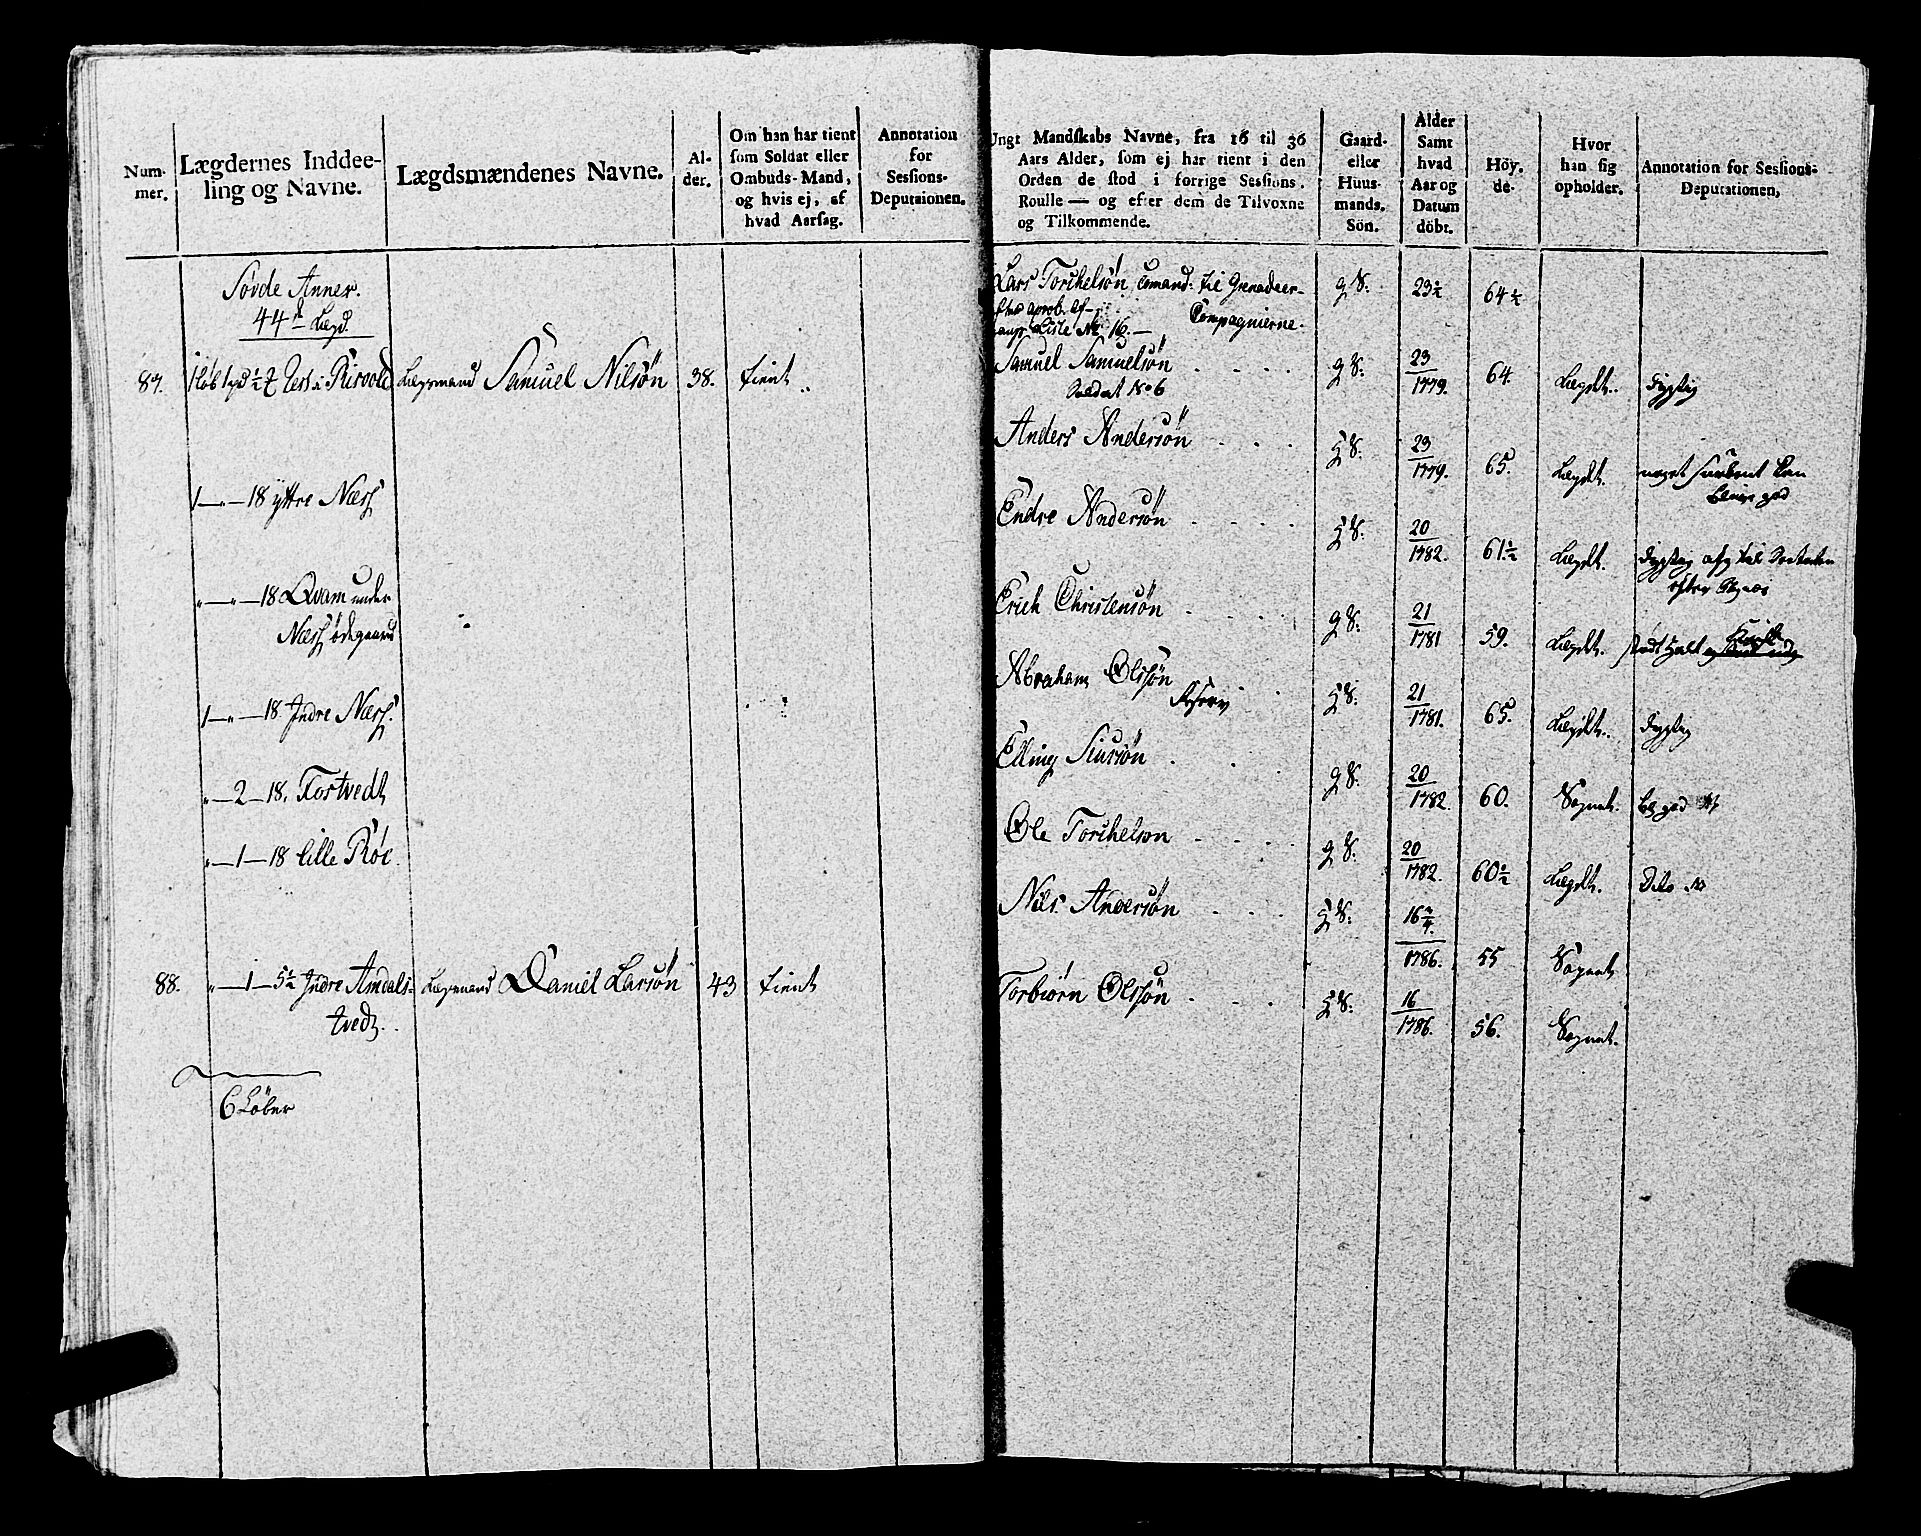 Num-
mer.
Lægdernes Inddee-
ling og Navne.
Lægdsmændenes Navne.
Al-
der.
Om han har tient
som Soldat eller
Ombuds-Mand,
og hvis ej, af
hvad Aarsag.
Annotation
for
Sessions-
Deputaionen.
Ungt Mandskabs Navne, fra 16 til 36
Aars Alder, som ej har tient i den
Orden de stod i forrige Sessions.
Roulle — og efter dem de Tilvoxne
og Tilkommende.
Gaard-
eller
Huus-
mands.
Sön.
Alder
Samt
hvad
Aar og
Datum
döbt.
Höy-
de.
Hvor
han sig
opholder.
Annotation for Sessions-
Deputationen.
Søvde Annex.
44de Lægd.
87. Lægsmand Samuel Nilsön 38. tient
1 — " — 18 yttre Næss
" — " — 18 Qvam under
Næss ødegaard
1 — " — 18 Indre Næss.
" — 2 — 18. Tostvedt
" — 1 — 18 lille Röe.
88. " — 1 — 5½ Indre Amdals- Lægsmand Daniel Larsön 43 tient
tvedt.
6 Løber
Lars Torchelsön Comand: til Grenadeer- g S: 23½ 64½
Compagnierne.
Liste No 16. —
Samuel Samuelsön g S: 23/1779. 64. Lægdet. dygtig
Soldat 1806
Anders Andersön g S: 23/1779. 65. Lægdet.
Endre Andersön g S: 20/1782. 61½ Lægdet. dygtig
Erich Christensön g S: 21/1781 59. Lægdet.
Abraham Olssön g S: 21/1781. 65. Lægdet. dygtig
Elling Siursön g S: 20/1782. 60. Sognet.
Ole Torchelson g S: 20/1782. 60½ Lægdet. Dito
Nils Andersön g S: 16 /1786. 55 Sognet
Torbiörn Olssön g S: 16/1786. 56. Sognet.